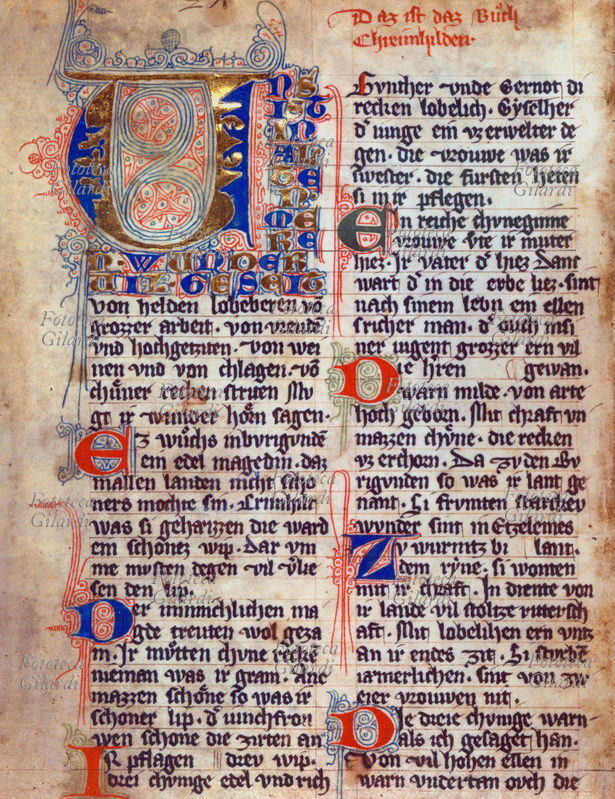 Daz ist daz Buͦch
Chreimhilden·
UNS
IST
IN
ALTEN
MERE
N·WUNDER
VIL·GESEIT
von helden lobeberen vō
grozzer arbeit· von vreude
vnd hochgeziten· von wei
nen vnd von chlagen· võ
chuͤner rechen striten Mu
gt ir wunder hoͤrn sagen·
Ez wuͦchs inburgundē
ein edel magedin· daz
in allen landen nicht scho
ners mochte sin· Crimhilt
was si geheizzen die ward
ein schonez wip· Dar vm
me mvsten degen vil v̓lie
sen den lip·
Der minnichlichen ma
gde trevten wol geza
m· Ir mvͤten chvne recke
nieman was ir gram· ane
mazzen schoͤne so was ir
schoner lip· d̓ iunchfrow
wen schone die zirten an
Ir pflagen drey wip·
drei chvnige edel vnd rich
Gunther vnde Gernot di
recken lobelich· Gyselher
d̓ iunge ein vz erwelter de
gen· die vrouwe was ir
swester· die fursten heten
si in ir pflegen·
Ein reiche chvneginne
vrouwe vͦte ir muter
hiez· Ir vater d̓ hiez Danc
wart d̓ in die erbe liez· sint
nach sinem lebn ein ellen
tricher man· d̓ ouch insi
ner iugent grozzer ern vil
gewan·
Die h̓ren
warn milde· von arte
hoch geborn· Mit chraft vn
mazzen chvͤne· die recken
vz erchorn· Da zv den Bv
rigunden so was ir lant ge
nant· Si frvmten starchev
wvnder sint in Etzelenes
lant·
Zv wurmtz bi
dem ryne· si wonten
mit ir chraft· In diente von
ir lande vil stoltze rittersch
aft· Mit lobelihen ern vntz
an ir endes zit· Si sturbē
iamerlichen· sint von zw
eier vrouwen nit·
Die dreie chvnige warn
als ich gesaget han·
Von vil hohen ellen in
warn vndertan ovch die
Fototeca
Gilardi